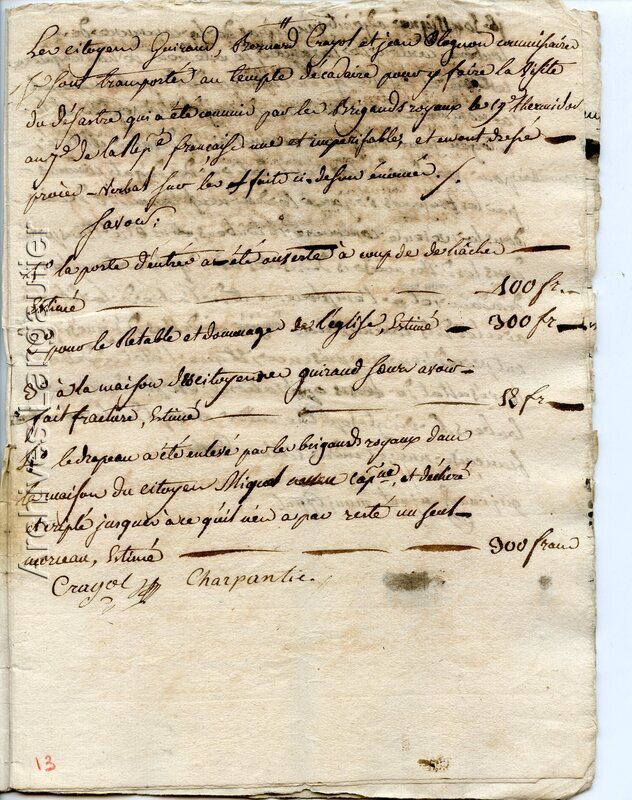 Les citoyens Guiraud, Bernard Crayol et jean Olognon commissaires
se sont transportés au temple décadaire pour y faire la visite
du désastre qui a été commis par les Brigands royaux le 19e thermidor
an 7e de la Repe française une et imperissable, et en ont dressé
procès-Verbal sur les 4 faits ci-dessus énoncés.
Savoir;
1° la porte d'entrée a été ouverte à coup de de hâches
Estimé 100 fr.
2° pour le Retable et dommages de l'église, Estimé 300 fr
3° à la maison des citoyennes guiraud sœurs avoir
fait fracture, Estimé 12 fr
4° le drapeau a été enlevé par les brigands royaux dans
la maison du citoyen Miquel capne, et déchiré
jusques à ce qu'il n'en a pas resté un seul
morceau, Estimé 900 frans
Crayol Charpantié.
Archives-Larroutier
13